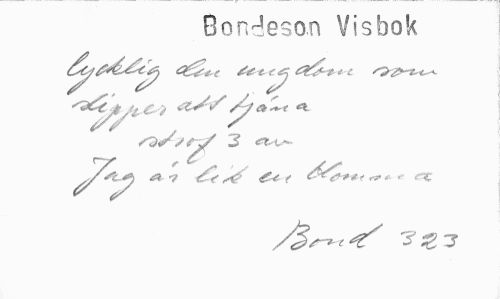 Bondeson Visbok
lycklig den ungdom som
slipper att tjäna
strof 3 av
Jag är lik en blomma
Bond 323